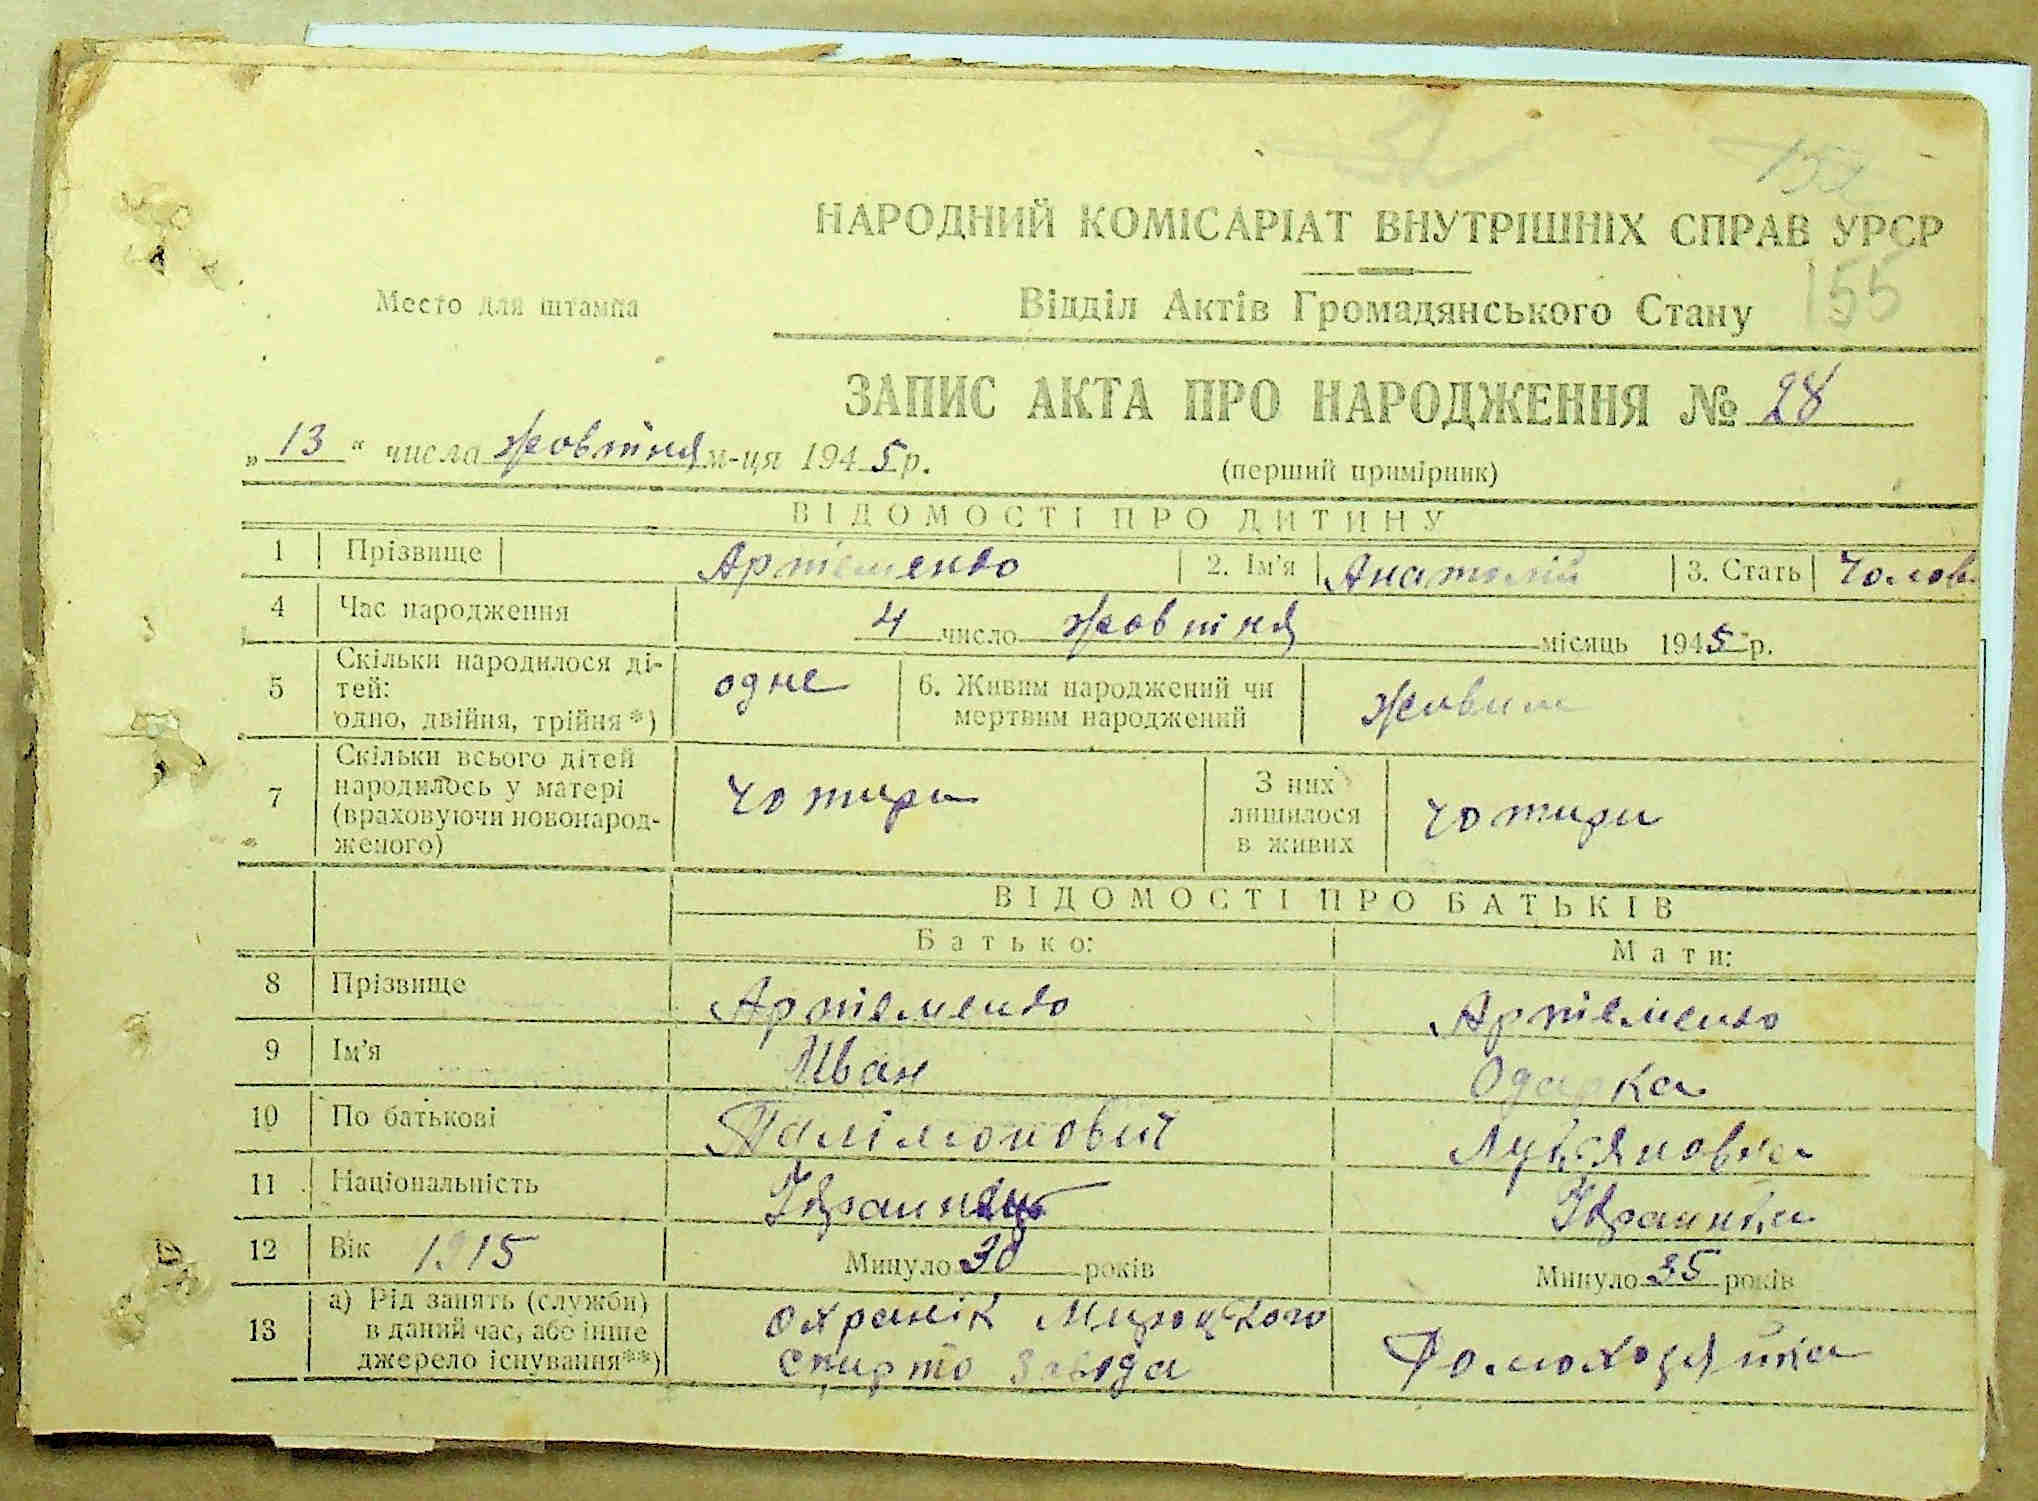 НАРОДНИЙ КОМІСАРІАТ ВНУТРІШНІХ СПРАВ УРСР
Место для штампа
Відділ Актів Громадянського Стану
155
ЗАПИС АКТА ПРО НАРОДЖЕННЯ № 28
„13“ числа жовтня м-ця 1945р.
(перший примірник)
ВІДОМОСТІ ПРО ДИТИНУ
1 Прізвище Артеменко 2. Ім'я Анатолій 3. Стать Чолов
4 Час народження 4 число жовтня місяць 1945 р.
5 Скільки народилося ді-
тей:
одно, двійня, трійня *) одне 6. Живим народжений чи
мертвим народжений живим
7 Скільки всього дітей
народилось у матері
(враховуючи новонарод-
женого) чотири З них
лишилося
в живих чотири
ВІДОМОСТІ ПРО БАТЬКІВ
Батько: Мати:
8 Прізвище Артеменко Артеменко
9 Ім'я Иван Одарка
10 По батькові Палімонович Лукяновна
11 Національність Украинець Украинка
12 Вік 1915 Минуло 30 років Минуло 35 років
13 а) Рід занять (служби)
в даний час, або інше
джерело існування**) охранік
спирто завода Домохозяйка